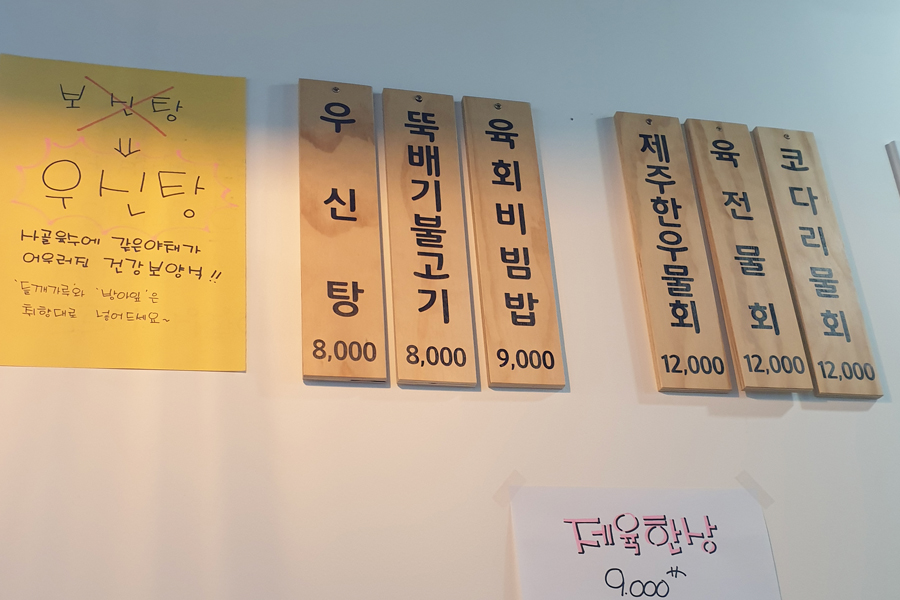 보신탕
⇓
우신탕
사골육수에 같은야채가
어우러진 건강보양식!!
'들깨가루'와 '방아잎'은
취향대로 넣어드세요~
우신탕
8,000
뚝배기불고기
8,000
육회비빔밥
9,000
제주한우물회
12,000
육전물회
12,000
코다리물회
12,000
제육한상
9.000₩